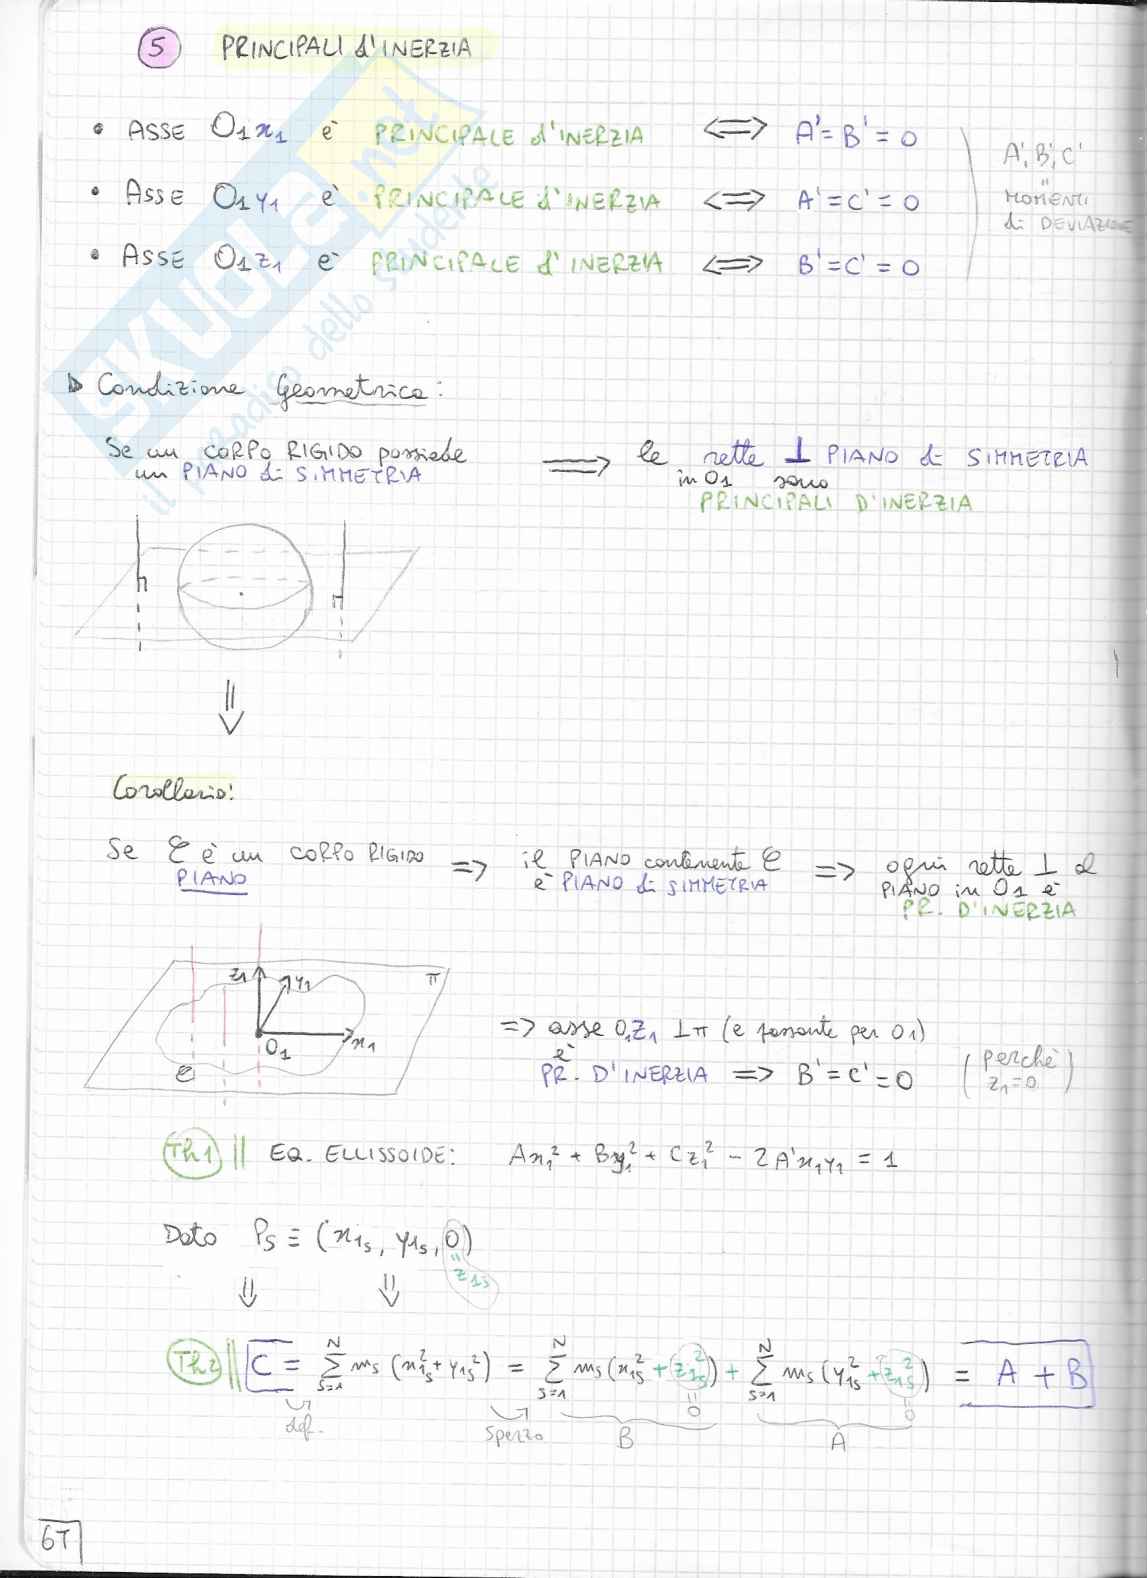 5 PRINCIPALI d'INERZIA
• ASSE O₁x₁ è PRINCIPALE d'INERZIA ⟺ A'=B'=0
• ASSE O₁y₁ è PRINCIPALE d'INERZIA ⟺ A'=C'=0
• ASSE O₁z₁ è PRINCIPALE d'INERZIA ⟺ B'=C'=0
A', B', C'
"
MOMENTI
di DEVIAZIONE
SKUOLA.net
il paradiso dello studente
Condizione Geometrica:
Se un CORPO RIGIDO possiede
un PIANO di SIMMETRIA
⟹ le rette ⊥ PIANO di SIMMETRIA
in O1 sono
PRINCIPALI D'INERZIA
⇓
Corollario:
Se C è un CORPO RIGIDO
PIANO
=> il PIANO contenente C
è PIANO di SIMMETRIA
=> ogni retta ⊥ al
PIANO in O1 è
PR. D'INERZIA
z₁ y₁ π
O₁ x₁
C
=> asse O₁z₁ ⊥π (e passante per O1)
è
PR. D'INERZIA => B'=C'=0
(perchè
z₁=0)
Th1 || EQ. ELLISSOIDE: Ax₁² + By₁² + Cz₁² - 2A'x₁y₁ = 1
Dato Ps ≡ (x₁s, y₁s, 0)
"
z₁s
⇓ ⇓
Th2 || C = Σ_{s=1}^{N} ms (x₁s² + y₁s²) = Σ_{s=1}^{N} ms (x₁s² + z₁s²) + Σ_{s=1}^{N} ms (y₁s² + z₁s²) = A + B
" 0 " 0
def. spezzo B A
6T